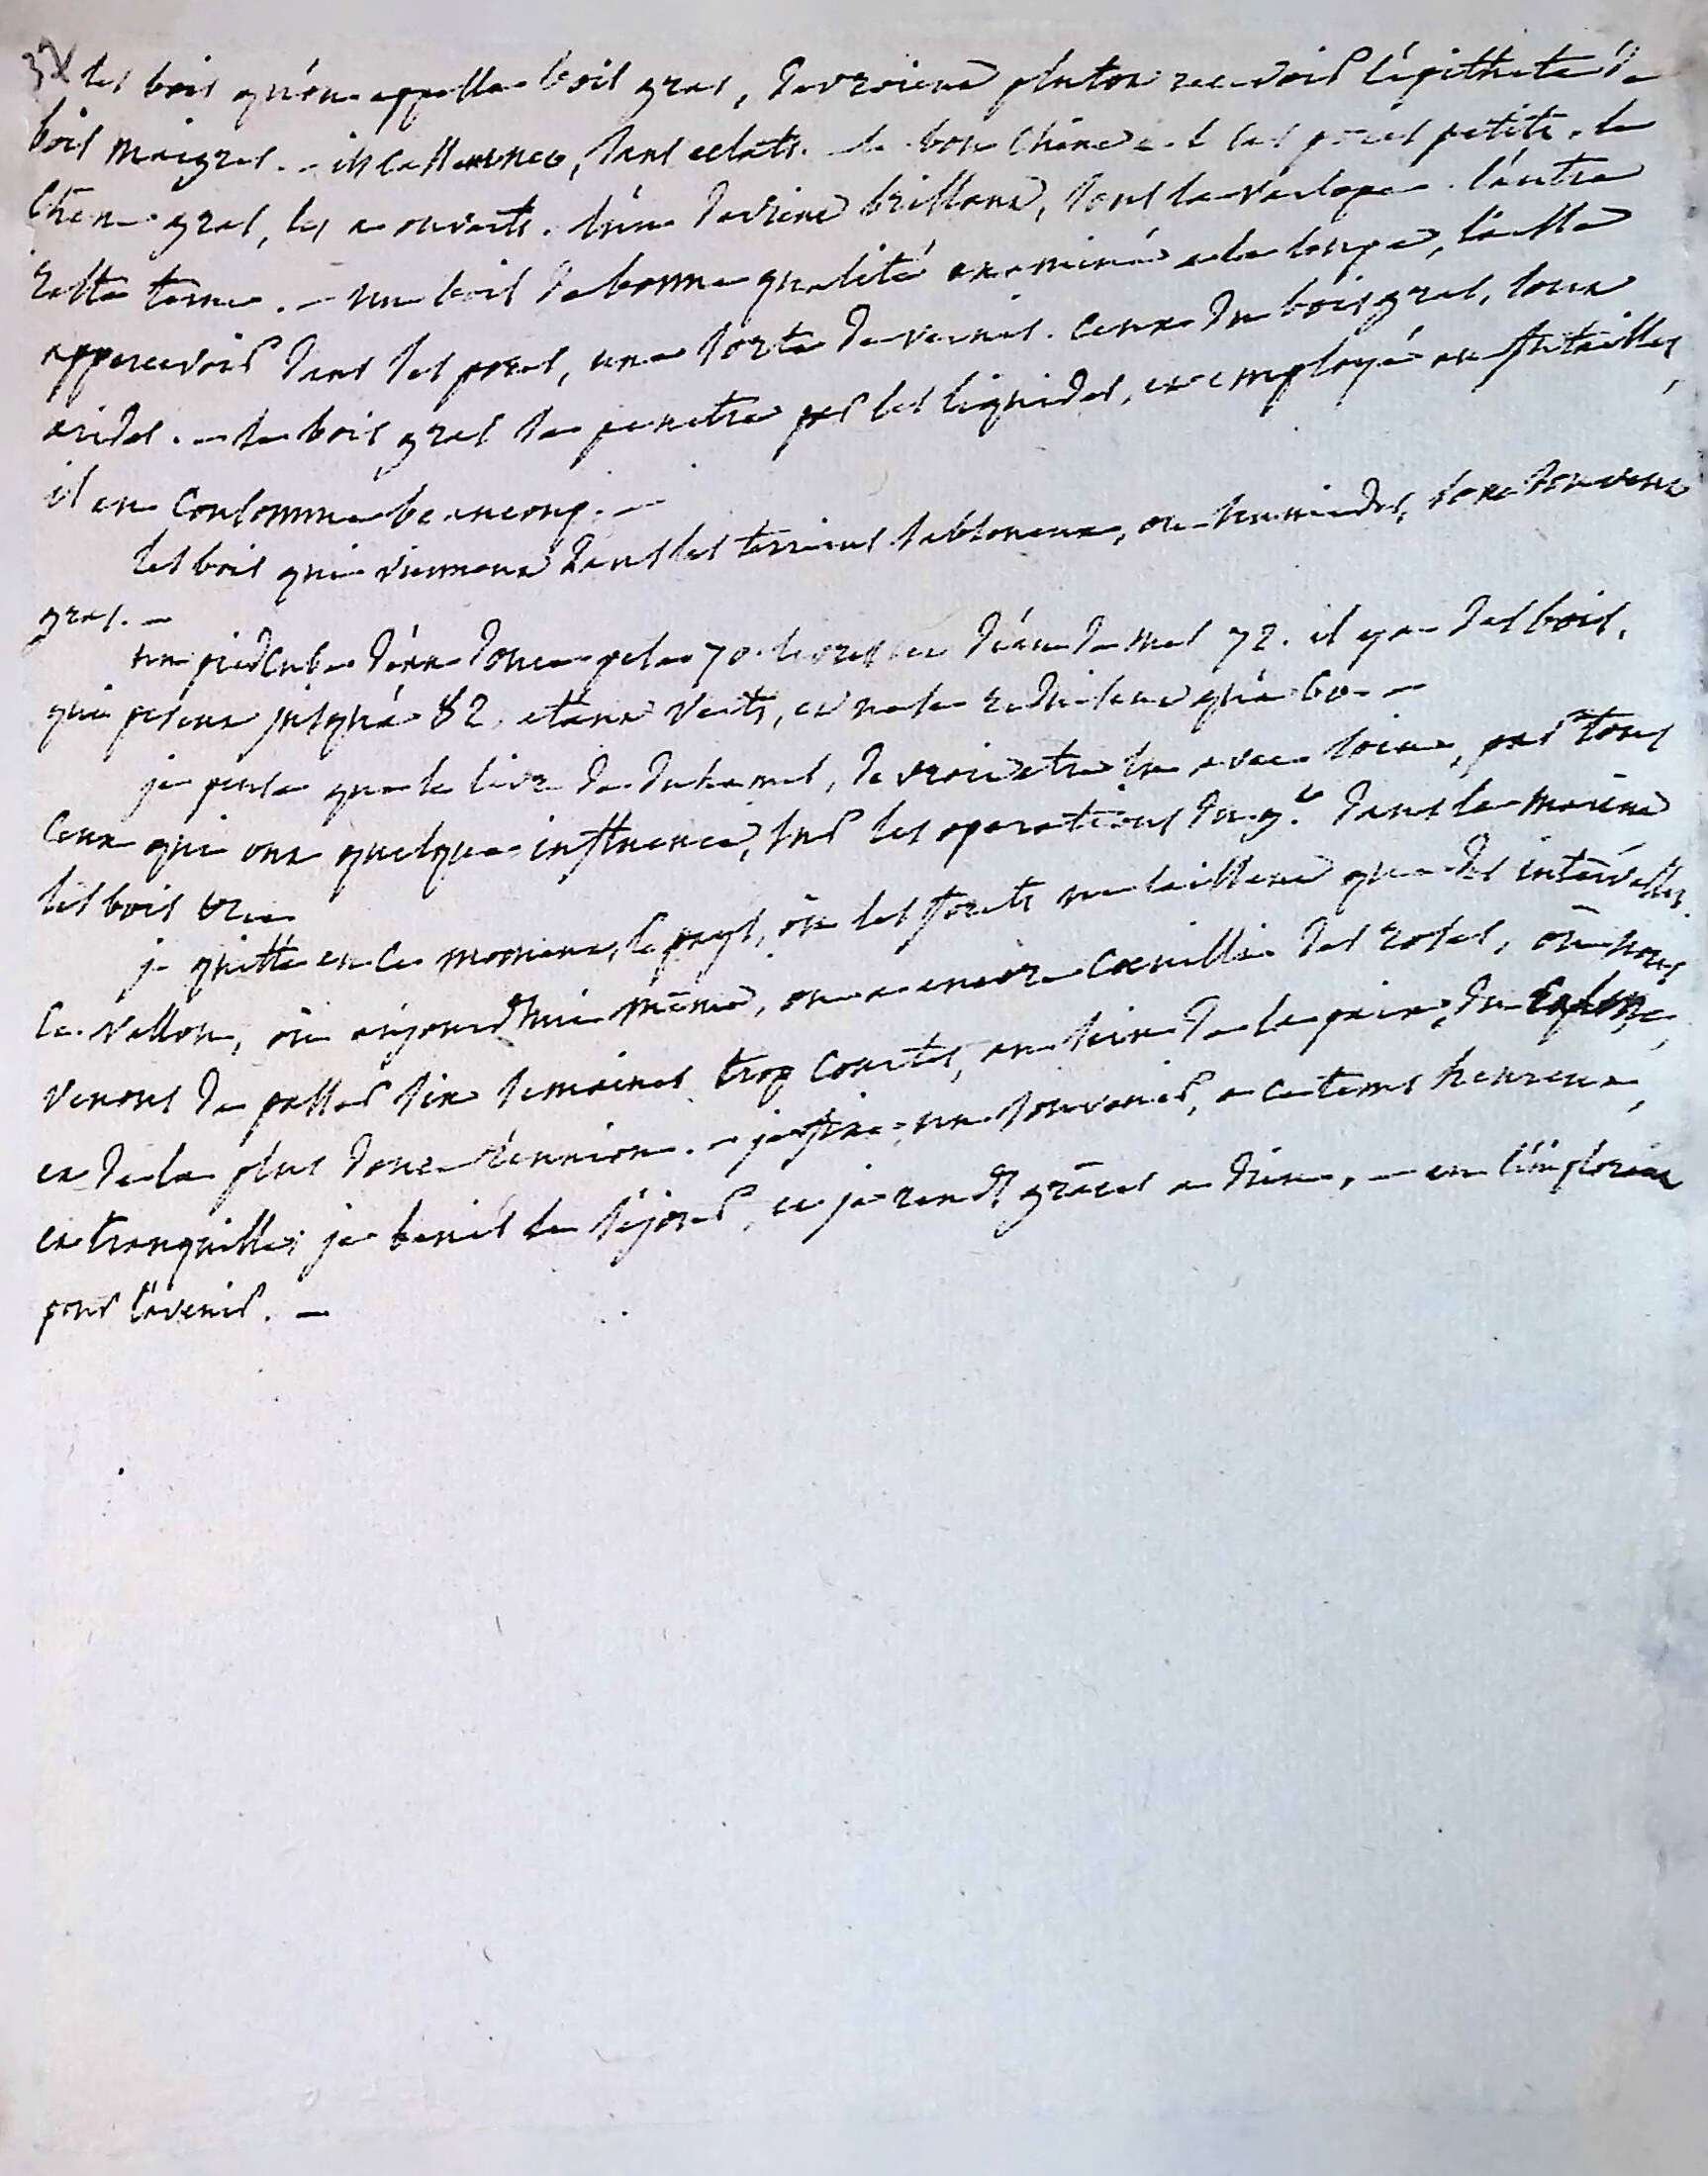 les bois qu'on appelle bois gras, devroient plutot recevoir l'épithete de
bois maigres. - ils cassent net, sans eclats. - le bon chêne a les pores petits. le
chene gras, les a ouverts. l'un devient brillant, sous la varlope. l'autre
reste terne. - un bois de bonne qualité examiné a la loupe, laisse
appercevoir dans ses pores, une sorte de vernis. ceux du bois gras, sont
arides. - le bois gras se penetre par les liquides, et employé en futailles,
il en consomme beaucoup. -
les bois qui viennent dans les terrains sabloneux, ou humides, sont souvent
gras. -
un pied cube d'eau douce pese 70 livres d'eau de mer 72. il y a des bois,
qui pesent jusqu'à 82, etant verts, et ne se reduisent qu'à 60 -
je pense que le livre de duhamel, devroit etre lu avec soin, par tous
ceux qui ont quelque influence, sur les operations du g.t dans la marine
les bois
je quitte en ce moment, le pays, où les forets ne laissent que des intervalles.
ce vallon, où aujourd'hui même, on a encor cueilli des roses, où nous
venons de passer six semaines trop courtes, au sein de la paix, du calme,
et de la plus douce réunion. - je fixe un souvenir, a ce tems heureux,
et tranquille; je benis le séjour, et je rends grâces a dieu, - en l'implorant
pour l'avenir. -